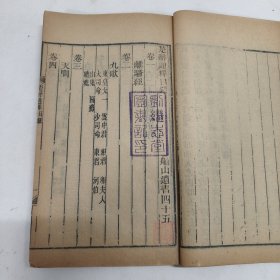 楚辭通釋目
船山遺書四十五
卷一
離騷經
卷二
九歌
東皇太一 雲中君 湘君 湘夫人
大司命 少司命 東君 河伯
山鬼 國殤
禮魂
卷三
天問
卷四